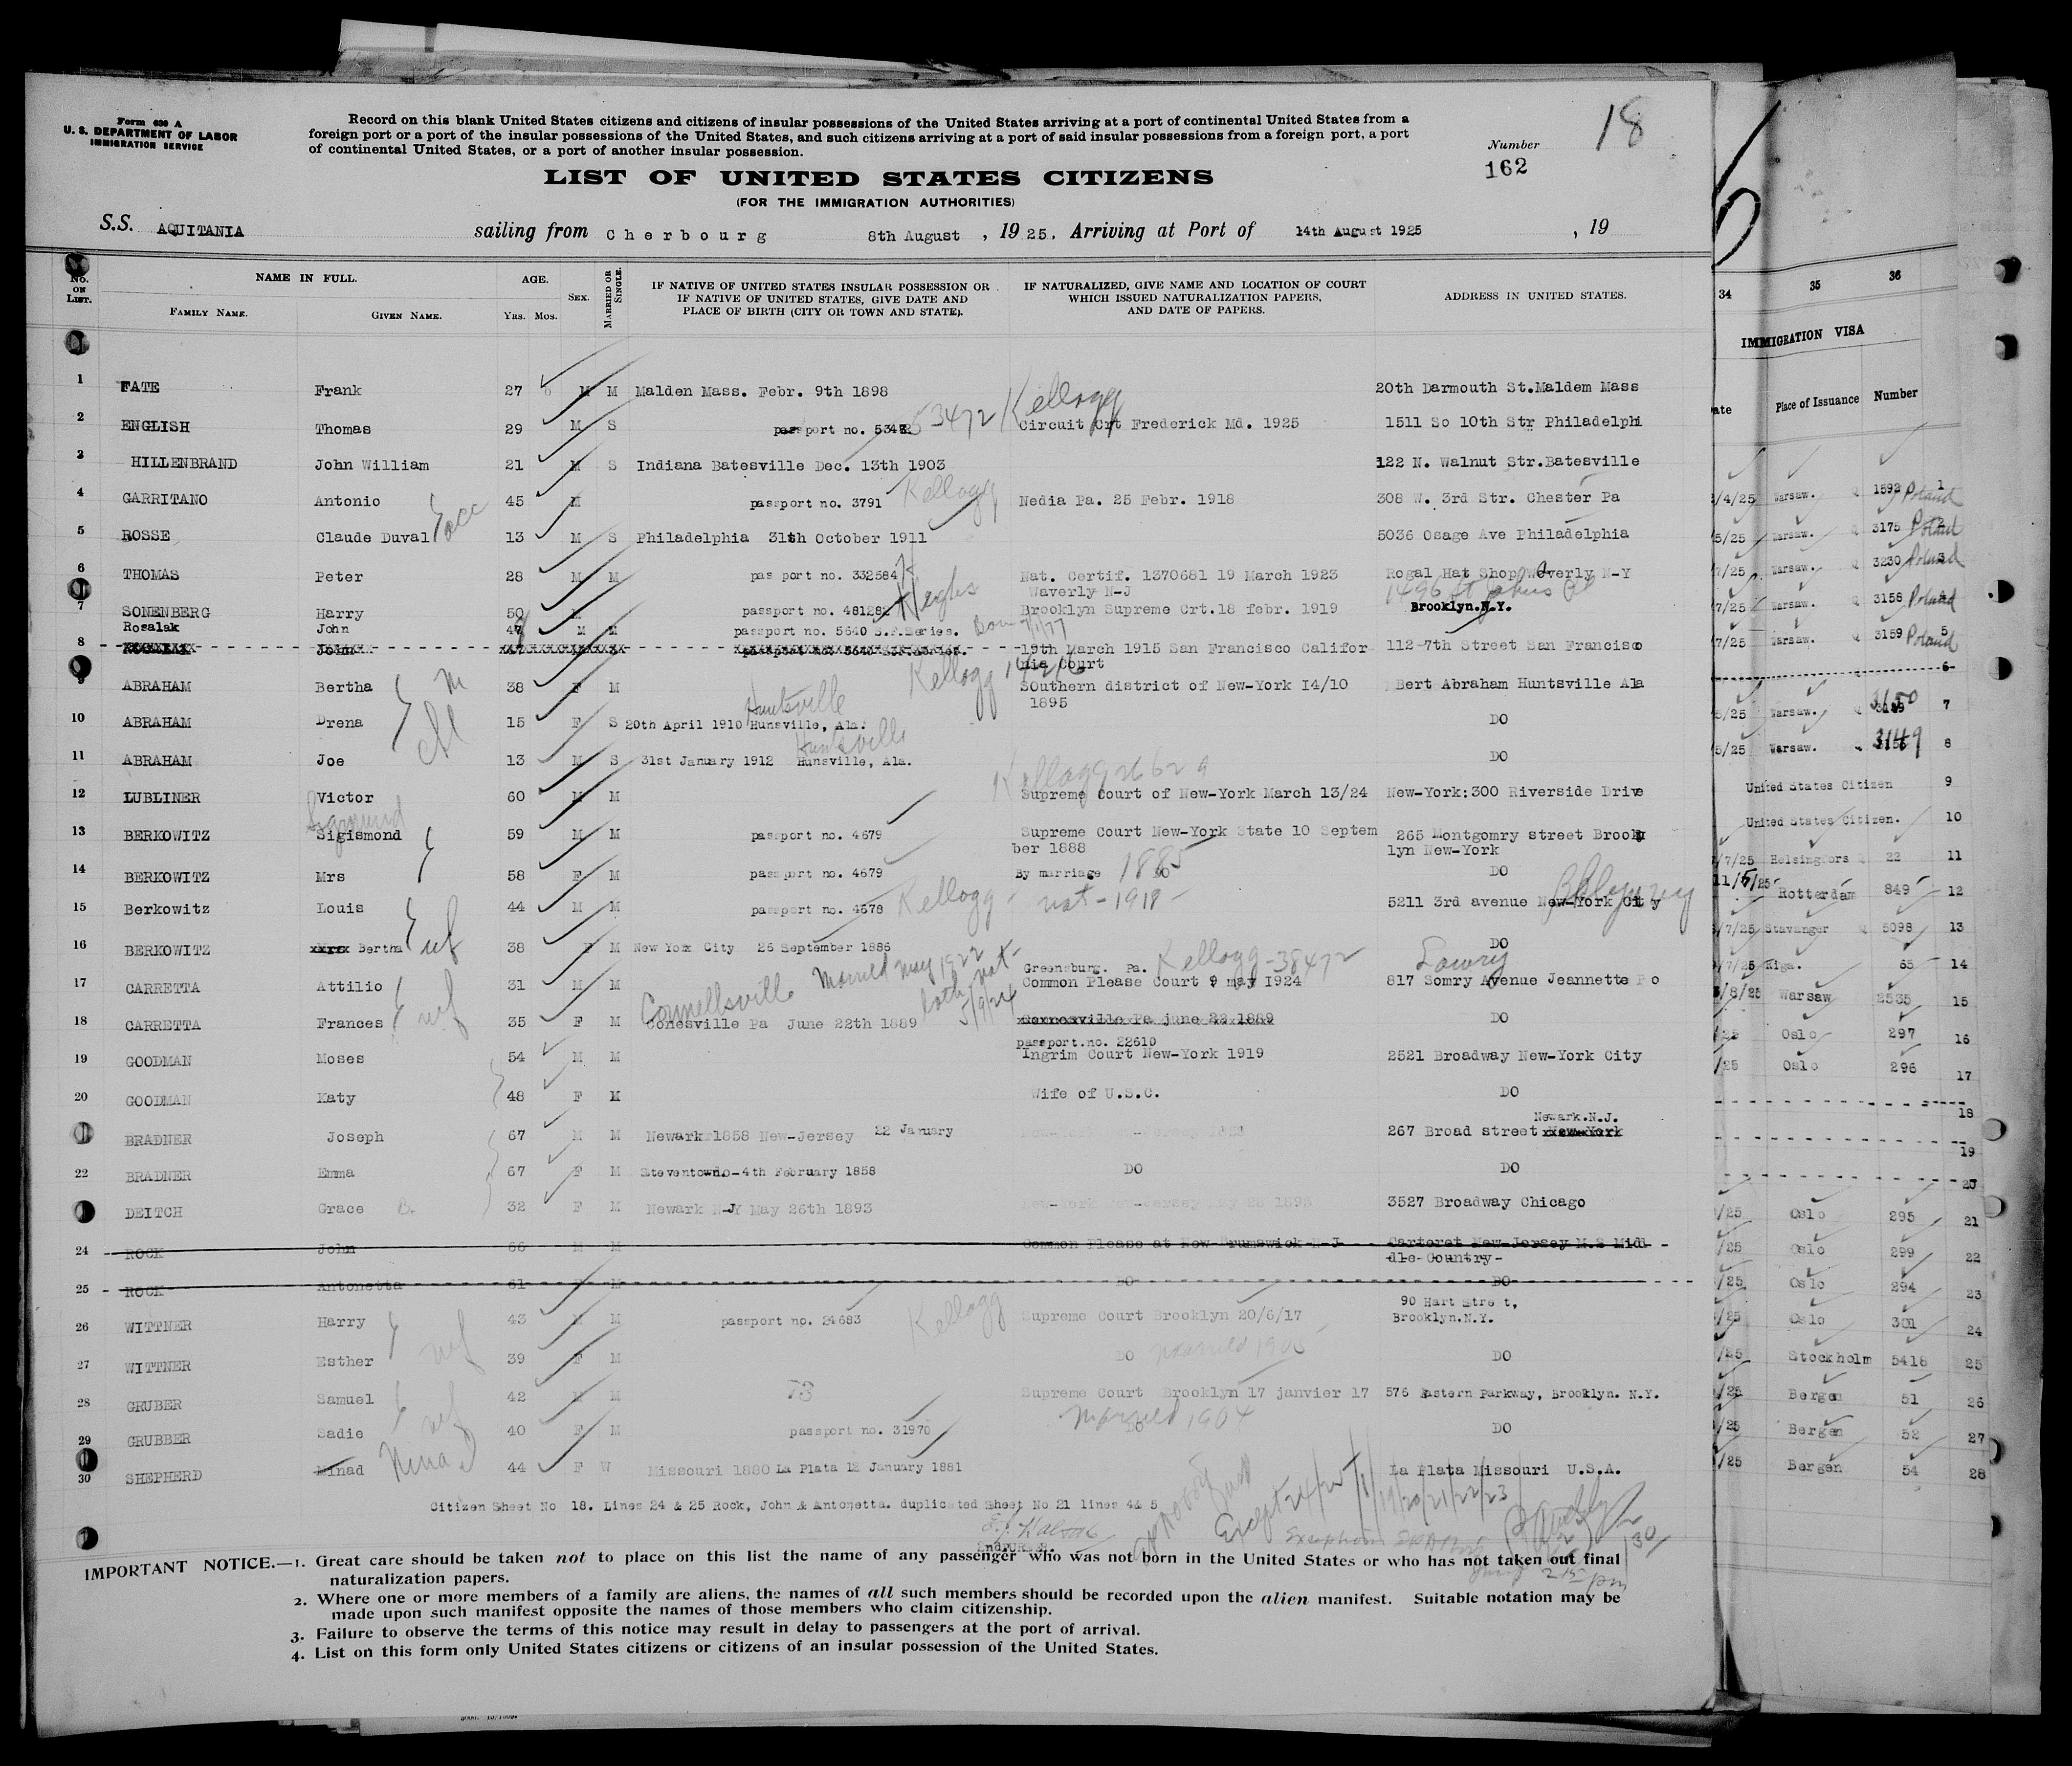 Form 630 A
U. S. DEPARTMENT OF LABOR
IMMIGRATION SERVICE
Record on this blank United States citizens and citizens of insular possessions of the United States arriving at a port of continental United States from a
foreign port or a port of the insular possessions of the United States, and such citizens arriving at a port of said insular possessions from a foreign port, a port
of continental United States, or a port of another insular possession.
18
Number
162
LIST OF UNITED STATES CITIZENS
(FOR THE IMMIGRATION AUTHORITIES)
S.S. AQUITANIA sailing from Cherbourg 8th August , 1925. Arriving at Port of 14th August 1925 , 19
No. ON LIST. NAME IN FULL. FAMILY NAME. GIVEN NAME. AGE. YRS. MOS. SEX. MARRIED OR SINGLE. IF NATIVE OF UNITED STATES INSULAR POSSESSION OR IF NATIVE OF UNITED STATES, GIVE DATE AND PLACE OF BIRTH (CITY OR TOWN AND STATE). IF NATURALIZED, GIVE NAME AND LOCATION OF COURT WHICH ISSUED NATURALIZATION PAPERS, AND DATE OF PAPERS. ADDRESS IN UNITED STATES.
1 FATE Frank 27 6 M M Malden Mass. Febr. 9th 1898 20th Darmouth St.Maldem Mass
Kellogg
2 ENGLISH Thomas 29 M S passport no. 53472 53472 Circuit Crt Frederick Md. 1925 1511 So 10th Str Philadelphi
3 HILLENBRAND John William 21 M S Indiana Batesville Dec. 13th 1903 122 N. Walnut Str.Batesville
4 GARRITANO Antonio 45 M passport no. 3791 Kellogg Nedia Pa. 25 Febr. 1918 308 W. 3rd Str. Chester Pa
acc
5 ROSSE Claude Duval 13 M S Philadelphia 31th October 1911 5036 Osage Ave Philadelphia
6 THOMAS Peter 28 M M pas port no. 332584 Nat. Certif. 1370681 19 March 1923 Rogal Hat Shop Waverly N-Y
Waverly N-J 1496 St Johns Pl
7 SONENBERG Harry 50 M passport no. 481282 Hughs Brooklyn Supreme Crt.18 febr. 1919 Brooklyn.N.Y.
Rosalak John 47 M M passport no. 5640 S.F.Series. Born 7/1/77
8 19th March 1915 San Francisco Califor 112-7th Street San Francisco
nia Court
Kellogg
9 ABRAHAM Bertha M 38 F M SOuthern district of New-York I4/10 Bert Abraham Huntsville Ala
1895
Huntsville
10 ABRAHAM Drena 15 F S 20th April 1910 Hunsville, Ala. DO
Huntsville
11 ABRAHAM Joe 13 M S 31st January 1912 Hunsville, Ala. DO
Kellogg 26629
12 LUBLINER Victor 60 M M Supreme Court of New-York March 13/24 New-York:300 Riverside Drive
Sigmund
13 BERKOWITZ Sigismond 59 M M passport no. 4679 Supreme Court New-York State 10 Septem 265 Montgomry street Brook
ber 1888 lyn New-York
14 BERKOWITZ Mrs 58 F M passport no. 4679 By marriage 1885 DO
15 Berkowitz Louis 44 M M passport no. 4678 Kellogg - nat - 1918 - 5211 3rd avenue New-York City
16 BERKOWITZ Bertha wf 38 F M New York City 26 September 1886 DO
Married May 1922 Greensburg. Pa. Kellogg-38472 Lowry
17 CARRETTA Attilio 31 M M Common Please Court 9 may I924 817 Somry Avenue Jeannette P o
Connellsville both nat- 5/9/24
18 CARRETTA Frances wf 35 F M Conesville Pa June 22th 1889 Connesville Pa june 22 1889 DO
passport.no. 22610
19 GOODMAN Moses 54 M M Ingrim Court New-York 1919 2521 Broadway New-York City
20 GOODMAN Katy 48 F M Wife of U.S.C. DO
Newark.N.J.
BRADNER Joseph 67 M M Newark 1858 New-Jersey 22 January 267 Broad street New-York
22 BRADNER Emma 67 F M Steventowno-4th February 1858 DO DO
DEITCH Grace B. 32 F M Newark N-JY May 26th 1893 3527 Broadway Chicago
24 ROCK John 66 M M Common Please at New Brunswick N-J Carteret New-Jersey M.S Midl
dle-Country-
25 ROCK Antonetta 61 F M DO DO
90 Hart Stre t,
26 WITTNER Harry 43 M M passport no. 24683 Kellogg Supreme Court Brooklyn 20/6/17 Brooklyn.N.Y.
27 WITTNER Esther wf 39 F M DO married DO
28 GRUBER Samuel 42 M M 73 Supreme Court Brooklyn 17 janvier 17 576 Eastern Parkway, Brooklyn. N.Y.
Married 1904
29 GRUBBER Sadie wf 40 F M passport no. 31970 DO DO
30 SHEPHERD Minad Nina 44 F W Missouri 1880 La Plata 12 January 1881 La Plata Missouri U.S.A.
Citizen Sheet No 18. Lines 24 & 25 Rock, John & Antonetta. duplicated Sheet No 21 lines 4& 5
Except 24/25/1/19/20/21/22/23
30
2nd PURSER.
IMPORTANT NOTICE.—1. Great care should be taken not to place on this list the name of any passenger who was not born in the United States or who has not taken out final
naturalization papers.
2. Where one or more members of a family are aliens, the names of all such members should be recorded upon the alien manifest. Suitable notation may be
made upon such manifest opposite the names of those members who claim citizenship.
3. Failure to observe the terms of this notice may result in delay to passengers at the port of arrival.
4. List on this form only United States citizens or citizens of an insular possession of the United States.
34 35 36
IMMIGRATION VISA
ate Place of Issuance Number
/4/25 Warsaw. Q 1592 Poland 1
5/25 Warsaw. Q 3175 Poland 2
7/25 Warsaw. Q 3230 Poland 3
7/25 Warsaw. Q 3158 Poland 4
7/25 Warsaw. Q 3159 Poland 5
6
5/25 Warsaw. Q 3150 7
5/25 Warsaw. Q 3149 8
United States Citizen 9
United States Citizen. 10
/7/25 Helsingfors Q 22 11
11/5/25 Rotterdam 849 12
/7/25 Stavanger Q 5098 13
/7/25 Riga. 65 14
/8/25 Warsaw 2535 15
/25 Oslo 297 16
/25 Oslo 296 17
18
19
20
/25 Oslo 295 21
/25 Oslo 299 22
/25 Oslo 294 23
/25 Oslo 301 24
/25 Stockholm 5418 25
/25 Bergen 51 26
/25 Bergen 52 27
/25 Bergen 54 28